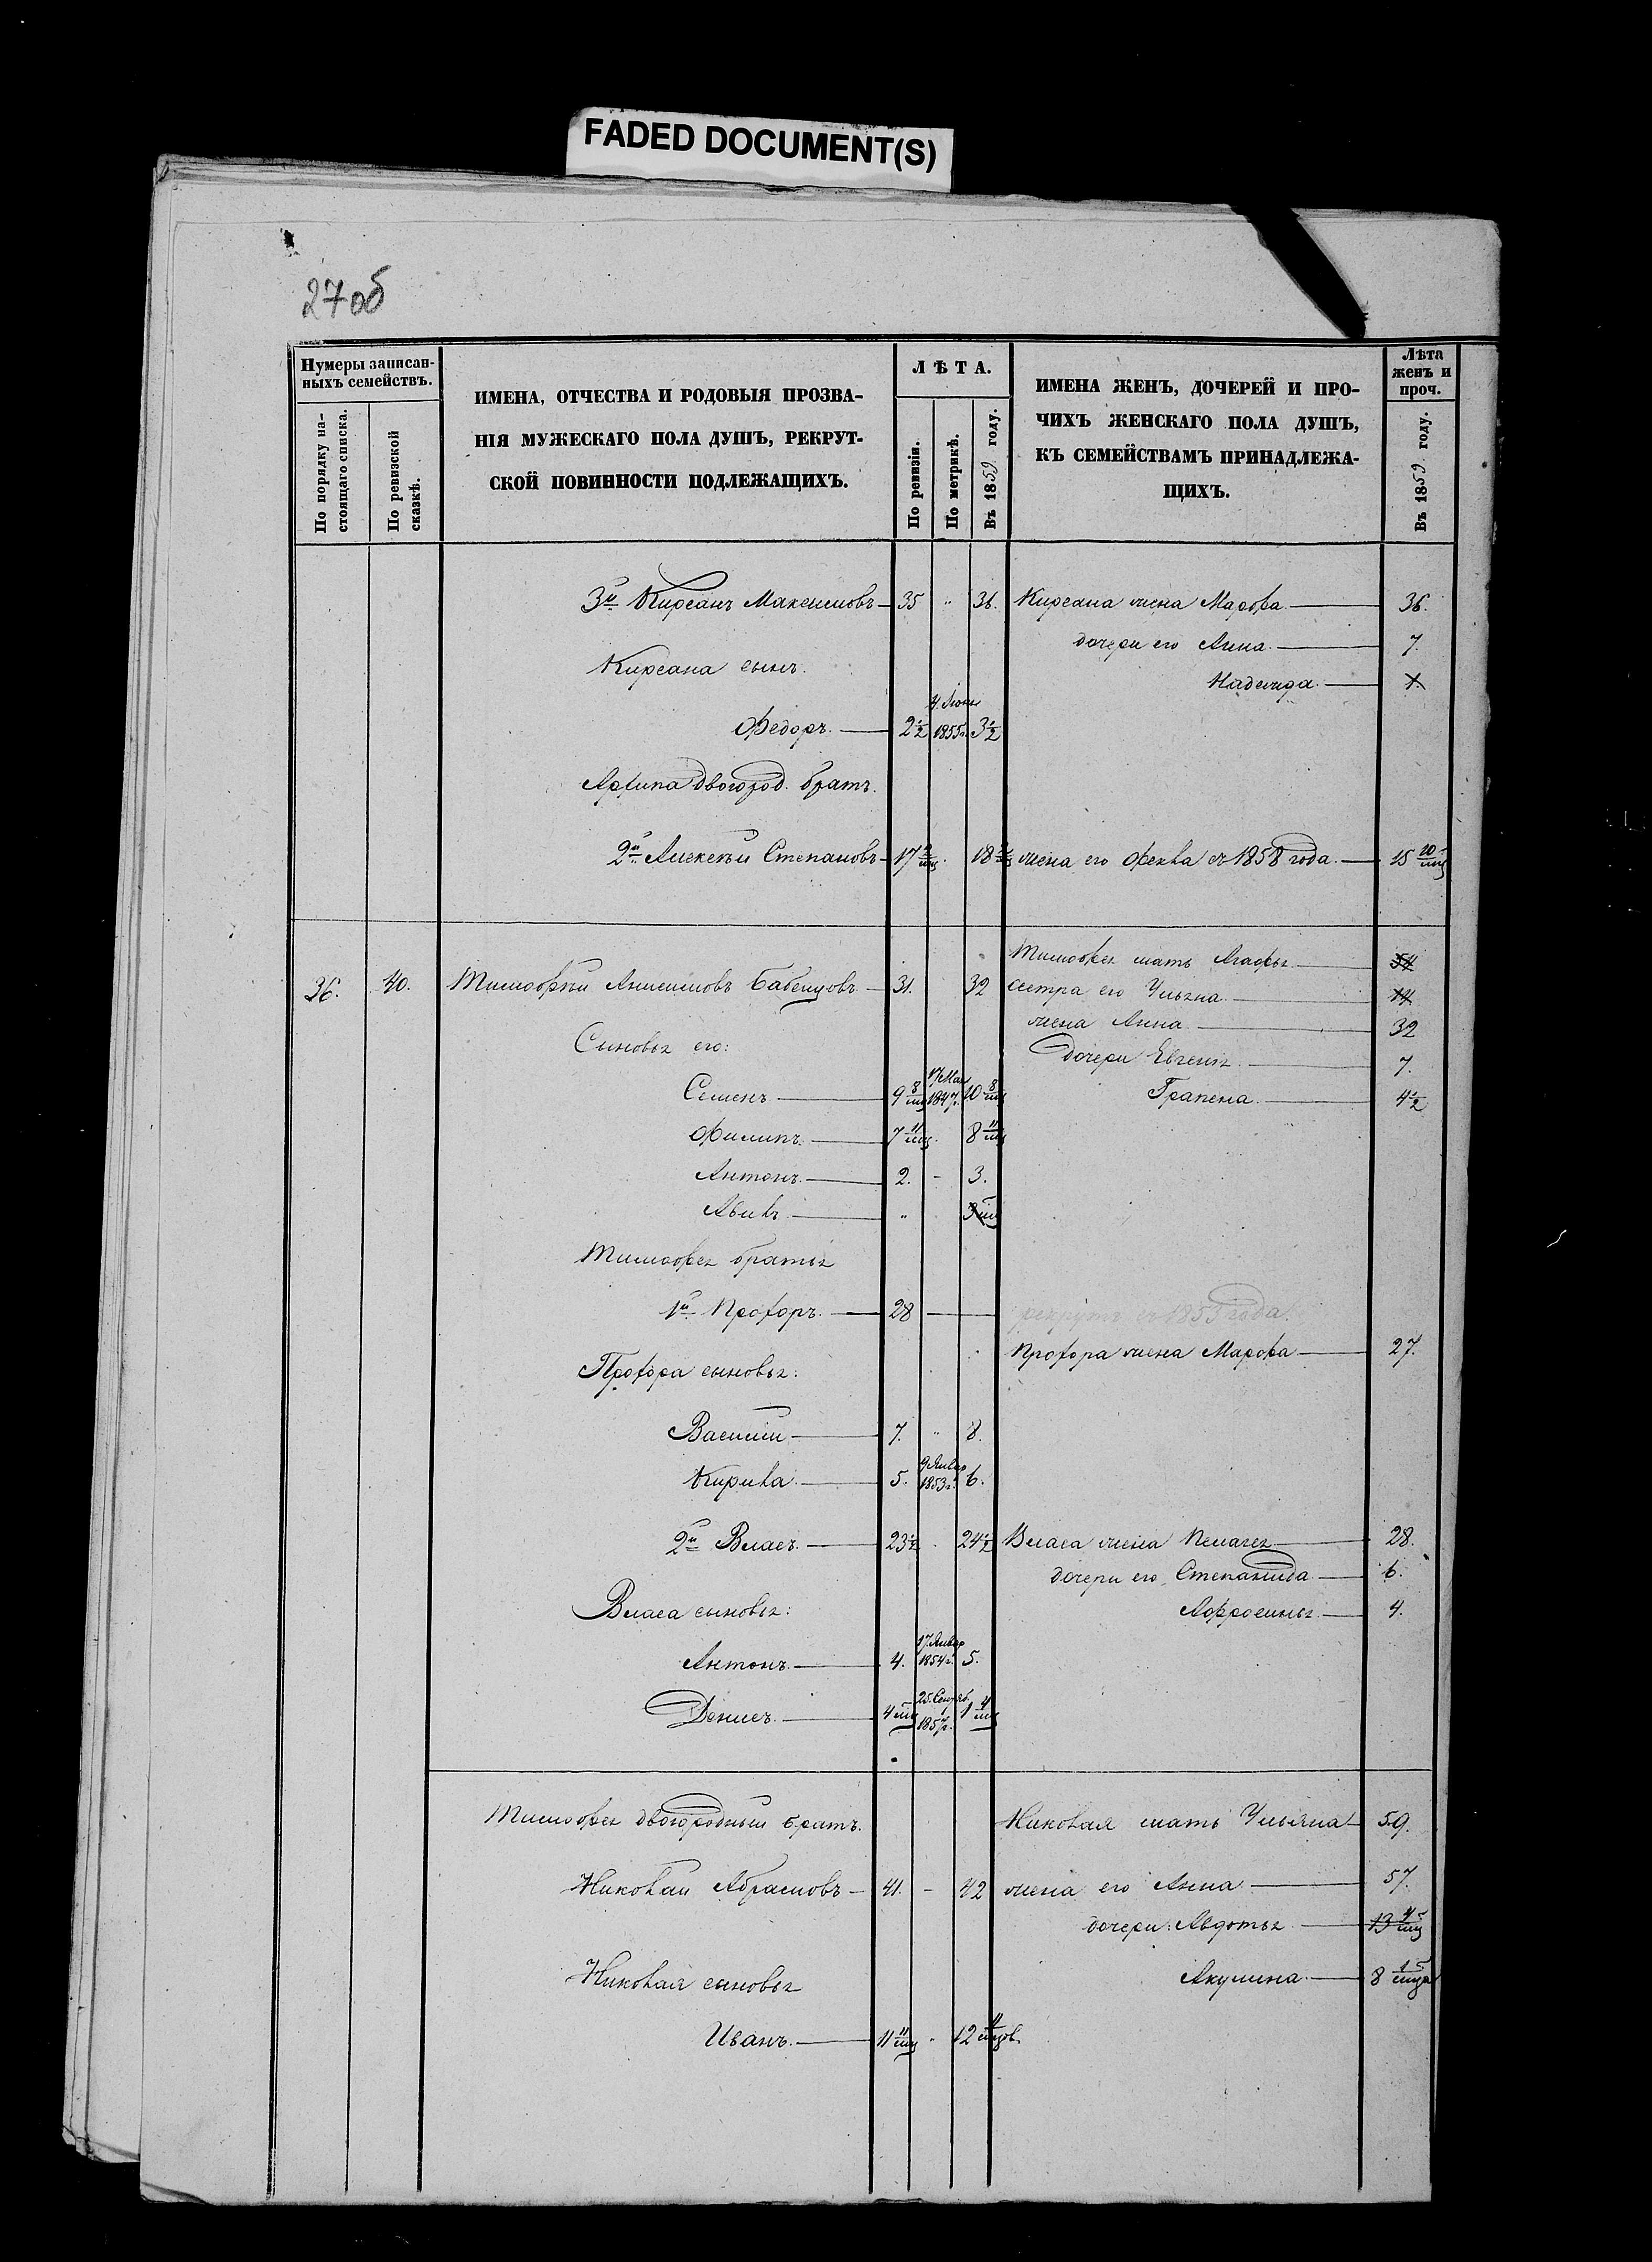 FADED DOCUMENT(S)
27 об
Нумеры записан-
ныхъ семействъ.
По порядку на-
стоящаго списка.
По ревизской
сказкѣ.
ИМЕНА, ОТЧЕСТВА И РОДОВЫЯ ПРОЗВА-
НІЯ МУЖЕСКАГО ПОЛА ДУШЪ, РЕКРУТ-
СКОЙ ПОВИННОСТИ ПОДЛЕЖАЩИХЪ.
ЛѢТА.
По ревизіи.
По метрикѣ.
Въ 1859 году.
ИМЕНА ЖЕНЪ, ДОЧЕРЕЙ И ПРО-
ЧИХЪ ЖЕНСКАГО ПОЛА ДУШЪ,
КЪ СЕМЕЙСТВАМЪ ПРИНАДЛЕЖА-
ЩИХЪ.
Лѣта
женъ и
проч.
Въ 1859 году.
3й Кирсанъ Максимовъ 35 " 36. Кирсана жена Марфа 36.
дочери его Анна 7.
Кирсана сынъ.
Надежда 1.
Федоръ. 2½ 4 Іюня 1855 г. 3½
Архипа двоюрод. братъ.
2й Алексѣй Степановъ 17 2/мц 18 жена его Фекла съ 1858 года 15 10/мц
Тимофея мать Агафья 54
36. 40. Тимофѣй Анисимовъ Бабенцовъ 31. 32 сестра его Ульяна 14
жена Анна 32
Сыновья его:
дочери Евгенія 7.
Семенъ 9 8/мц 17 Мая 1847 г. 10 8/мц Грапена 4½
Филипъ 7 11/мц 8 11/мц
Антонъ 2. - 3.
Авилъ " 3 мц
Тимофея братья
1й Прохоръ. 28 рекрутъ съ 1855 года.
Прохора жена Марфа 27.
Прохора сыновья:
Василій 7. " 8.
Кирила 5. 9 Январ 1853 г. 6.
2й Власъ. 23½ 24½ Власа жена Пелагея 28.
дочери его Степанида 6.
Власа сыновья:
Афросинья 4.
Антонъ 4. 17 Январ 1854 г. 5.
Денисъ 4 мц 25 Сентяб. 1857 г. 1 4/мц
Тимофея двоюродный братъ. Николая мать Ульяна 59.
Николай Абрамовъ 41. - 42 жена его Анна 57.
дочери: Авдотья 13 4/мц
Николая сыновья
Акулина 8 1/мца
Иванъ. 11 11/мц 12 11/мцов.